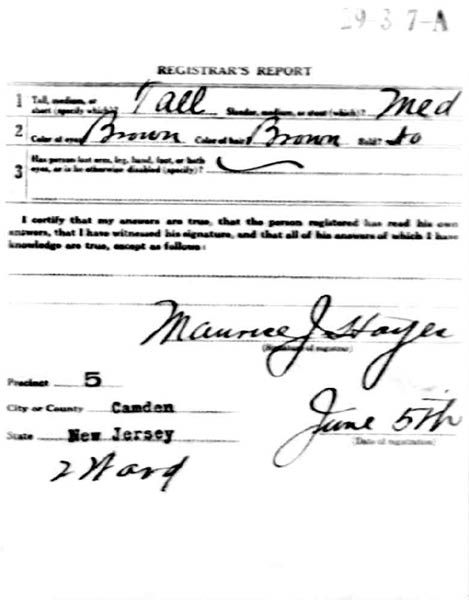 29-3 7-A
REGISTRAR'S REPORT
1 Tall, medium, or short (specify which)? Tall Slender, medium, or stout (which)? Med
2 Color of eyes Brown Color of hair? Brown Bald? No
3 Has person lost arm, leg, hand, foot, or both
eyes, or is he otherwise disabled (specify)?
I certify that my answers are true, that the person registered has read his own
answers, that I have witnessed his signature, and that all of his answers of which I have
knowledge are true, except as follows:
Maurice J. Hayes
(Signature of registrar)
Precinct 5
City or County Camden
State New Jersey
June 5th
(Date of registration)
2 Ward